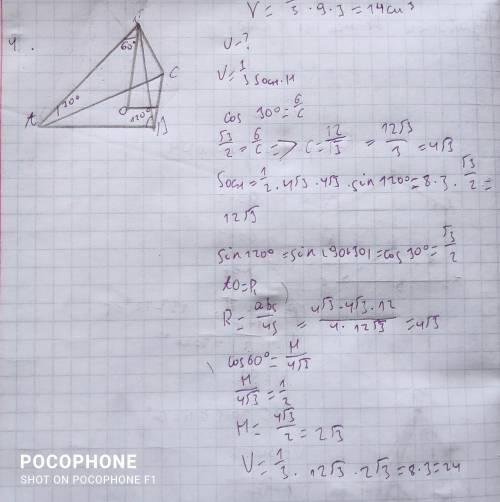 V = 1/3 · 9 · 3 = 14 cm³
4.
60°
C
A
30°
O
120°
B
V - ?
V = 1/3 Sосн · H
cos 30° = 6/c
√3/2 = 6/c => c = 12/√3 = 12√3/3 = 4√3
Sосн = 1/2 · 4√3 · 4√3 · sin 120° = 8 · 3 · √3/2 =
12√3
sin 120° = sin(90+30) = cos 30° = √3/2
AO = R,
R = abc/4S = 4√3 · 4√3 · 12/4 · 12√3 = 4√3
cos 60° = H/4√3
H/4√3 = 1/2
H = 4√3/2 = 2√3
V = 1/3 · 12√3 · 2√3 = 8 · 3 = 24
POCOPHONE
SHOT ON POCOPHONE F1